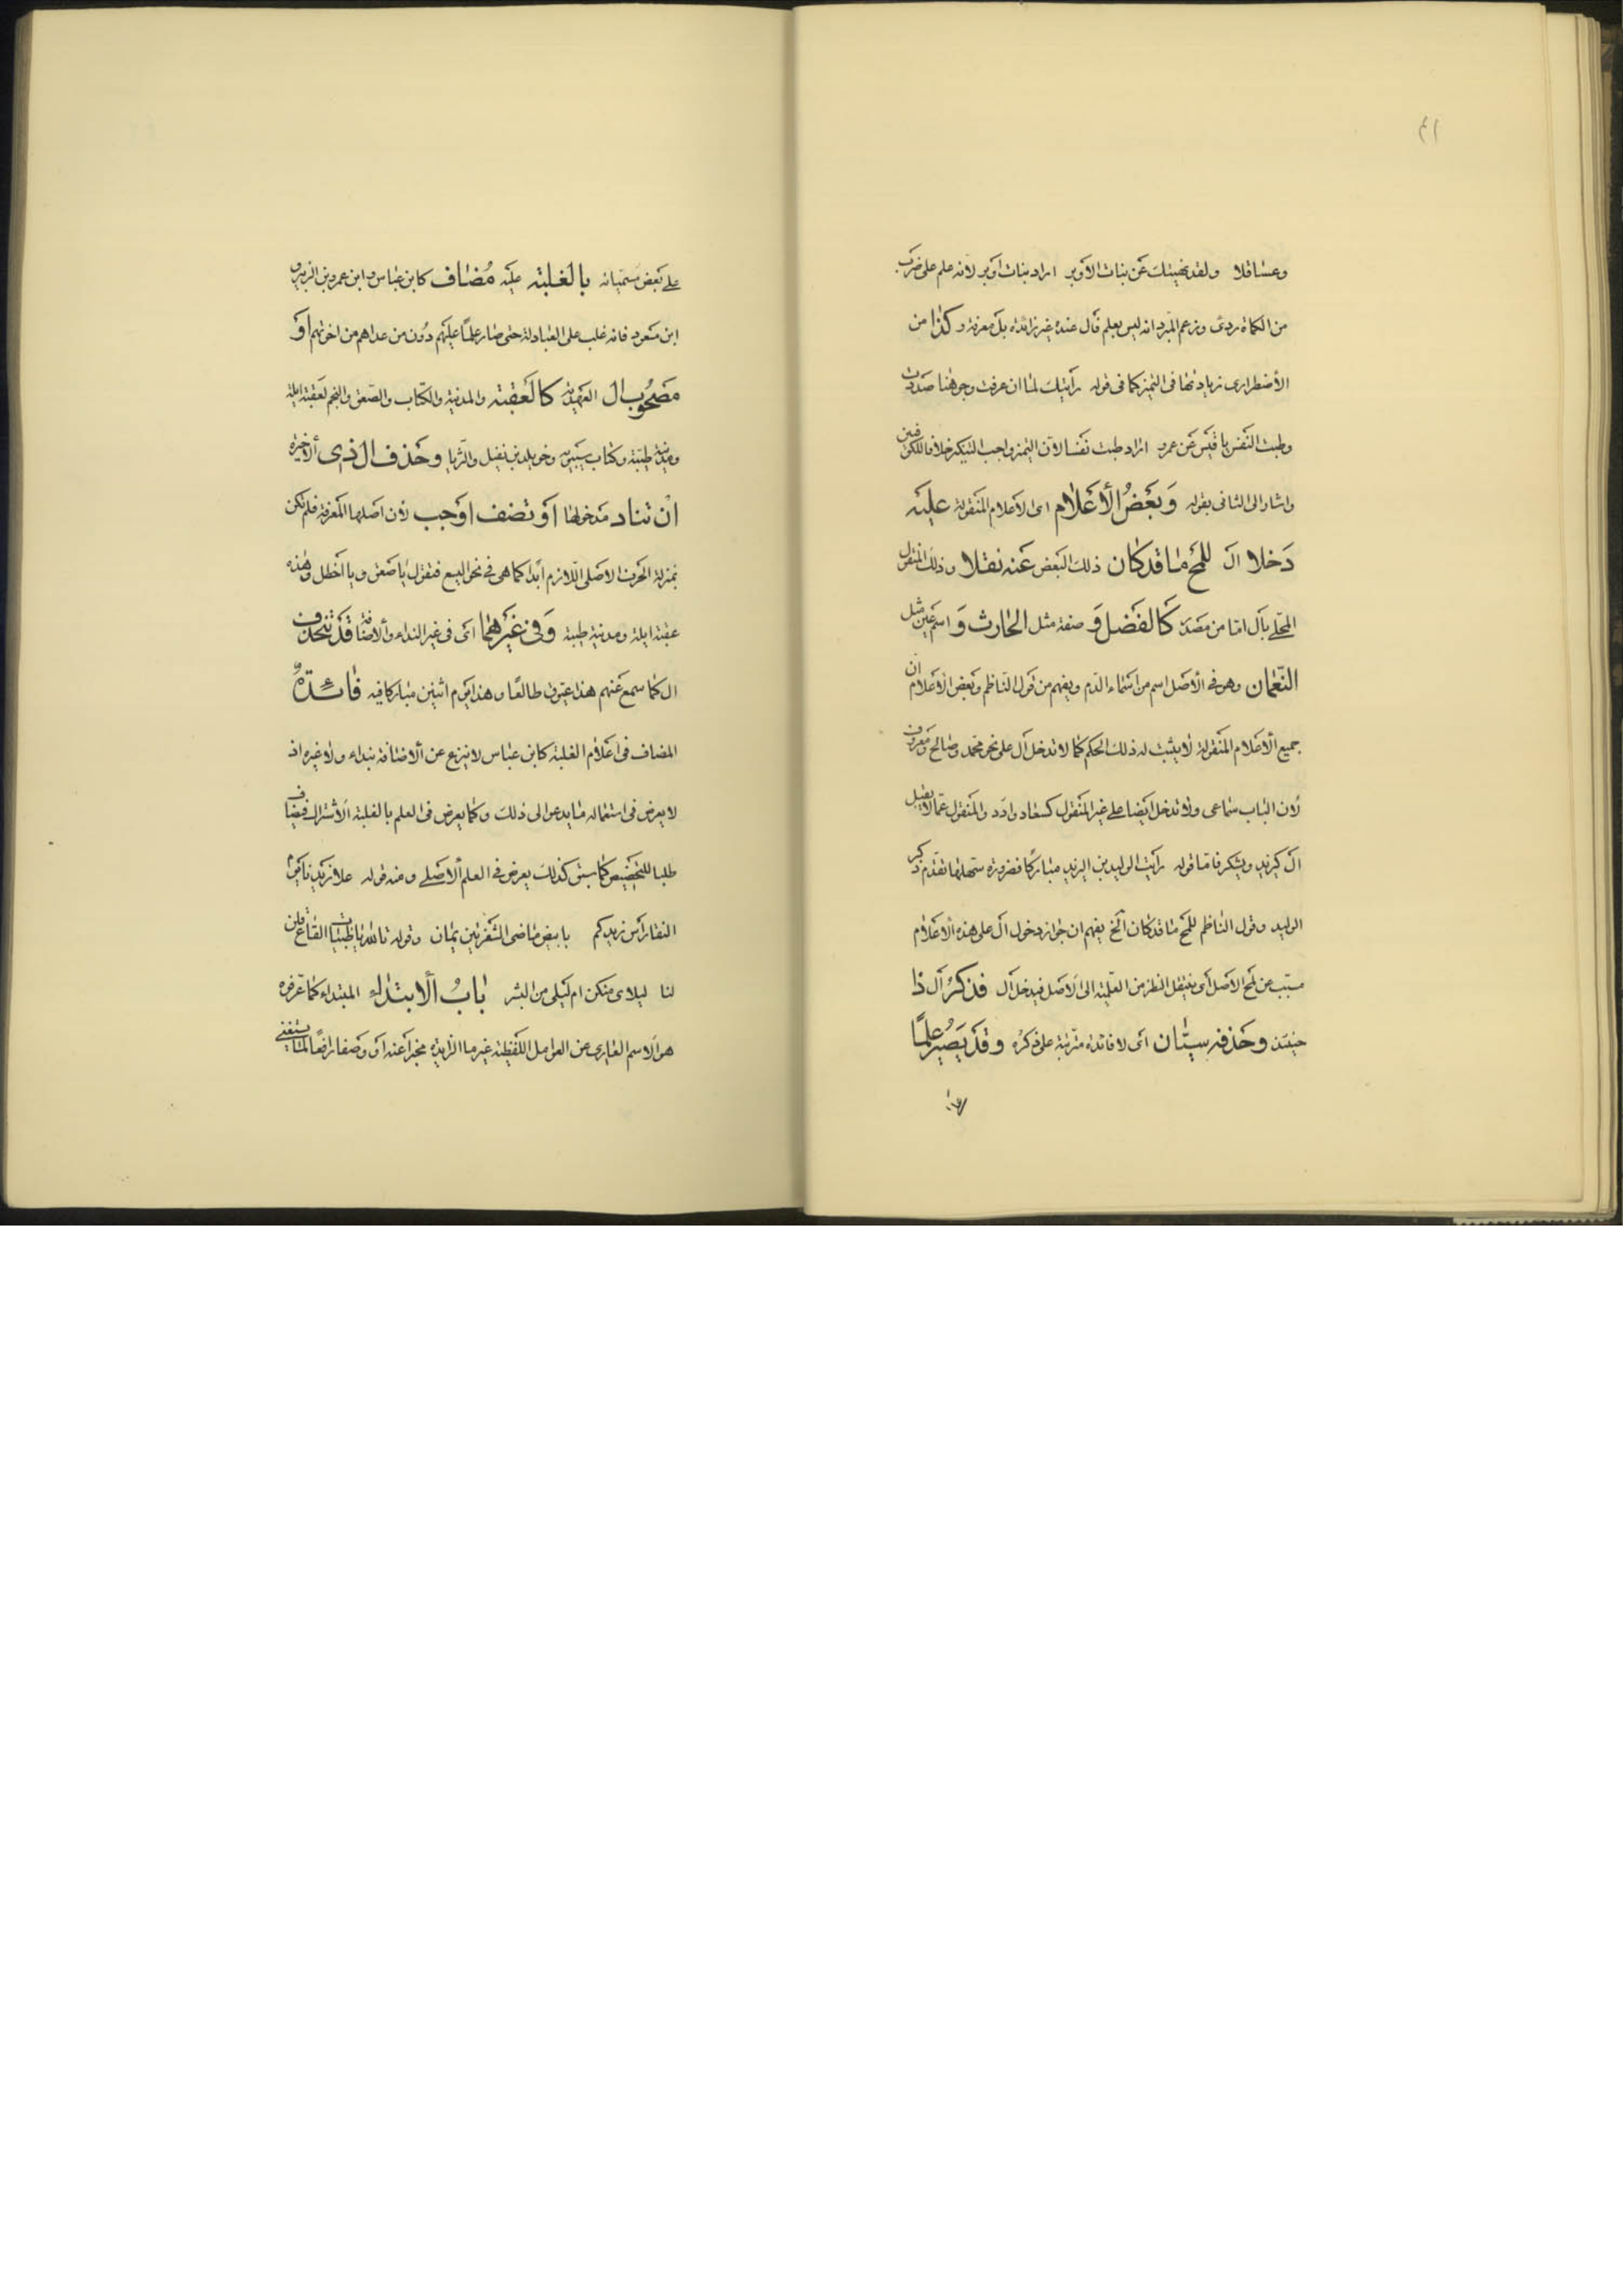 ٤١
وعساقلا ولقد نهيتك عن بنات الاوبر اراد بنات اوبر لانه علم على ضرب
من الكماة ردى وزعم المبرد انه ليس بعلم فال عنده غير زائدة بل معرفة وكذا من
الاضطرارى زيادتها فى التميز كما فى قوله رايتك لما ان عرفت وجوهنا صددت
وطبت النفس يا قيس عن عمرو اراد طبت نفسا لان التميز واجب التنكير خلافا للكوفين
واشار الى الثانى بقوله وَبَعضُ الأعلام اى الاعلام المنقولة عليه
دَخلا ال للمح ما قد كان ذلك البعض عنه نقلا وذلك المنقول
المحلى بال اما من مصدر كالفضل وَ صفة مثل الحارث وَ اسم عين مثل
النعمان وهو فى الأصل اسم من اسماء الدم ويفهم من قول الناظم وبعض الاعلام ان
جميع الأعلام المنقولة لا يثبت له ذلك الحكم كما لا تدخل ال على نحو محمد وصالح ومعروف
لان الباب سماعى ولا تدخل ايضا على غير المنقول كسعاد وادد والمنقول عما لا يقبل
ال كيزيد ويشكر فاما قوله رايت الوليد بن اليزيد مباركا فضرورة سهلها تقدم ذكر
الوليد وقول الناظم للمح ما قد كان الخ يفهم ان جواز دخول ال على هذه الأعلام
مسبب عن لمح الاصل اى ينتقل النظر من العلمية الى الاصل فيدخل ال فذكرُ ال ذا
حينئذ وحذفه سيان اى لا فائدة مترتبة على ذكره وقد يَصيرُ علمًا
على بعض مسمياته بالغلبة عليه مُضاف كابن عباس وابن عمرو بن الزبير و
ابن مسعود فانه غلب على العبادلة حتى صار علما عليهم دون من عداهم من اخوتهم اَو
مصحُوب ال العهدية كالعقبة والمدينة والكتاب والصعق والنجم لعقبة ايلة
ومدينة طيبة وكتاب سيبويه وخويلد بن نفيل والثريا وحذف ال ذى ألأخيرة
ان تناد مدخولها اَو تضف اوجب لأن اصلها المعرفة فلم تكن
بمنزلة الحرف الاصلى اللازم ابدا كما هى فى نحو اليسع فتقول يا صعق ويا اخطل وهذه
عقبة ايلة ومدينة طيبة وَفى غيرهما اى فى غير النداء والاضافة قد تنحذف
ال كما سمع عنهم هذا عيوق طالعا وهذا يوم اثنين مباركا فيه فائدةٌ
المضاف فى اعلام الغلبة كابن عباس لا ينزع عن الاضافة بنداء ولا غيره اذ
لا يعرض فى استعماله ما يدعو الى ذلك وكما يعرض فى العلم بالغلبة الاشتراك فيضاف
طلبا للتخصيص كما سبق كذلك يعرض فى العلم ألاصلى ومنه قوله علا زيدنا يوم
النقا راس زيدكم بابيض ماضى الشفرتين يمان وقوله تالله يا ظبيات القاع قلن
لنا ليلاى منكن ام ليلى من البشر بابُ ألابتداء المبتداء كما عرفوه
هو الاسم العارى عن العوامل اللفظية غير ما الزايدة مخبرا عنه او وصفا رافعا لما يستغنى